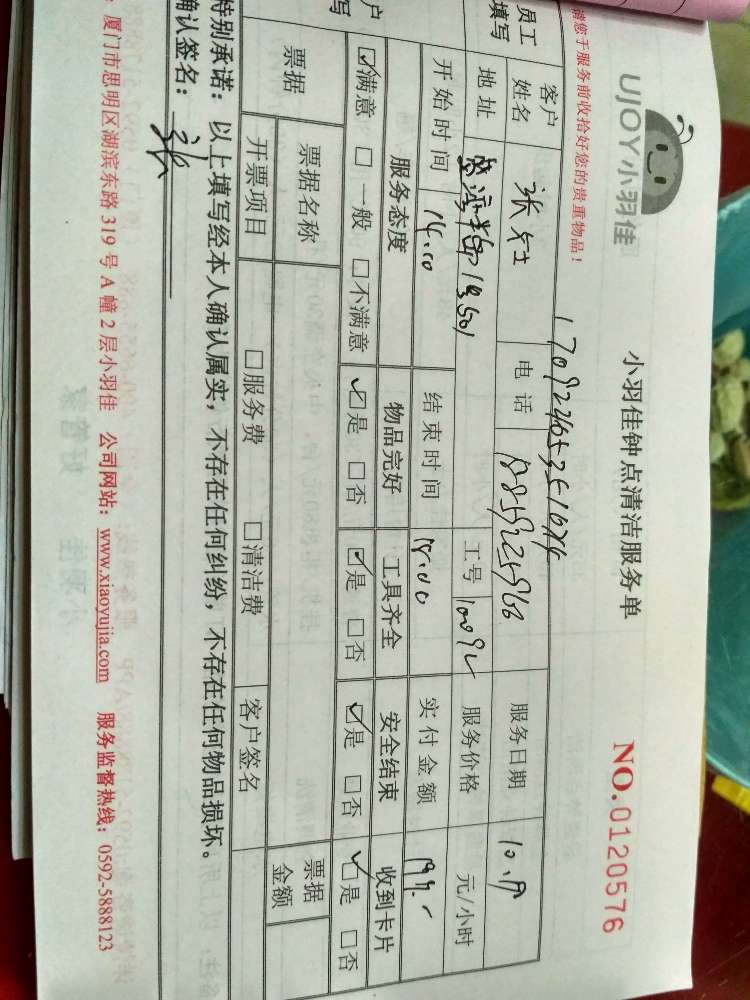 UJOY小羽佳
小羽佳钟点清洁服务单
NO.0120576
请您于服务前收拾好您的贵重物品！
员工填写
客户姓名 张女士 电话 服务日期
地址 工号 10092 服务价格 元/小时
开始时间 14:00 结束时间 18:00 实付金额
户
写
服务态度 物品完好 工具齐全 安全结束 收到卡片
☑满意 □一般 □不满意 ☑是 □否 ☑是 □否 ☑是 □否 ☑是 □否
票据 票据名称 票据金额
开票项目 □服务费 □清洁费 客户签名
特别承诺：以上填写经本人确认属实，不存在任何纠纷，不存在任何物品损坏。
确认签名：张
：厦门市思明区湖滨东路 319 号 A 幢 2 层小羽佳 公司网站：www.xiaoyujia.com 服务监督热线：0592-5888123